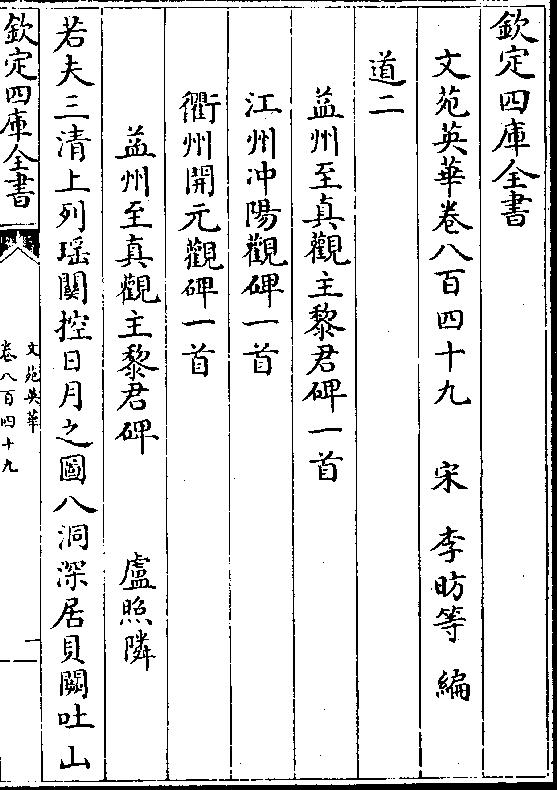 欽定四庫全書
文苑英華卷八百四十九　宋　李昉等　編
道二
益州至真觀主黎君碑一首
江州冲陽觀碑一首
衢州開元觀碑一首
益州至真觀主黎君碑　盧照隣
若夫三清上列瑶關控日月之圖八洞深居貝闕吐山
欽定四庫全書
文苑英華
卷八百四十九
一